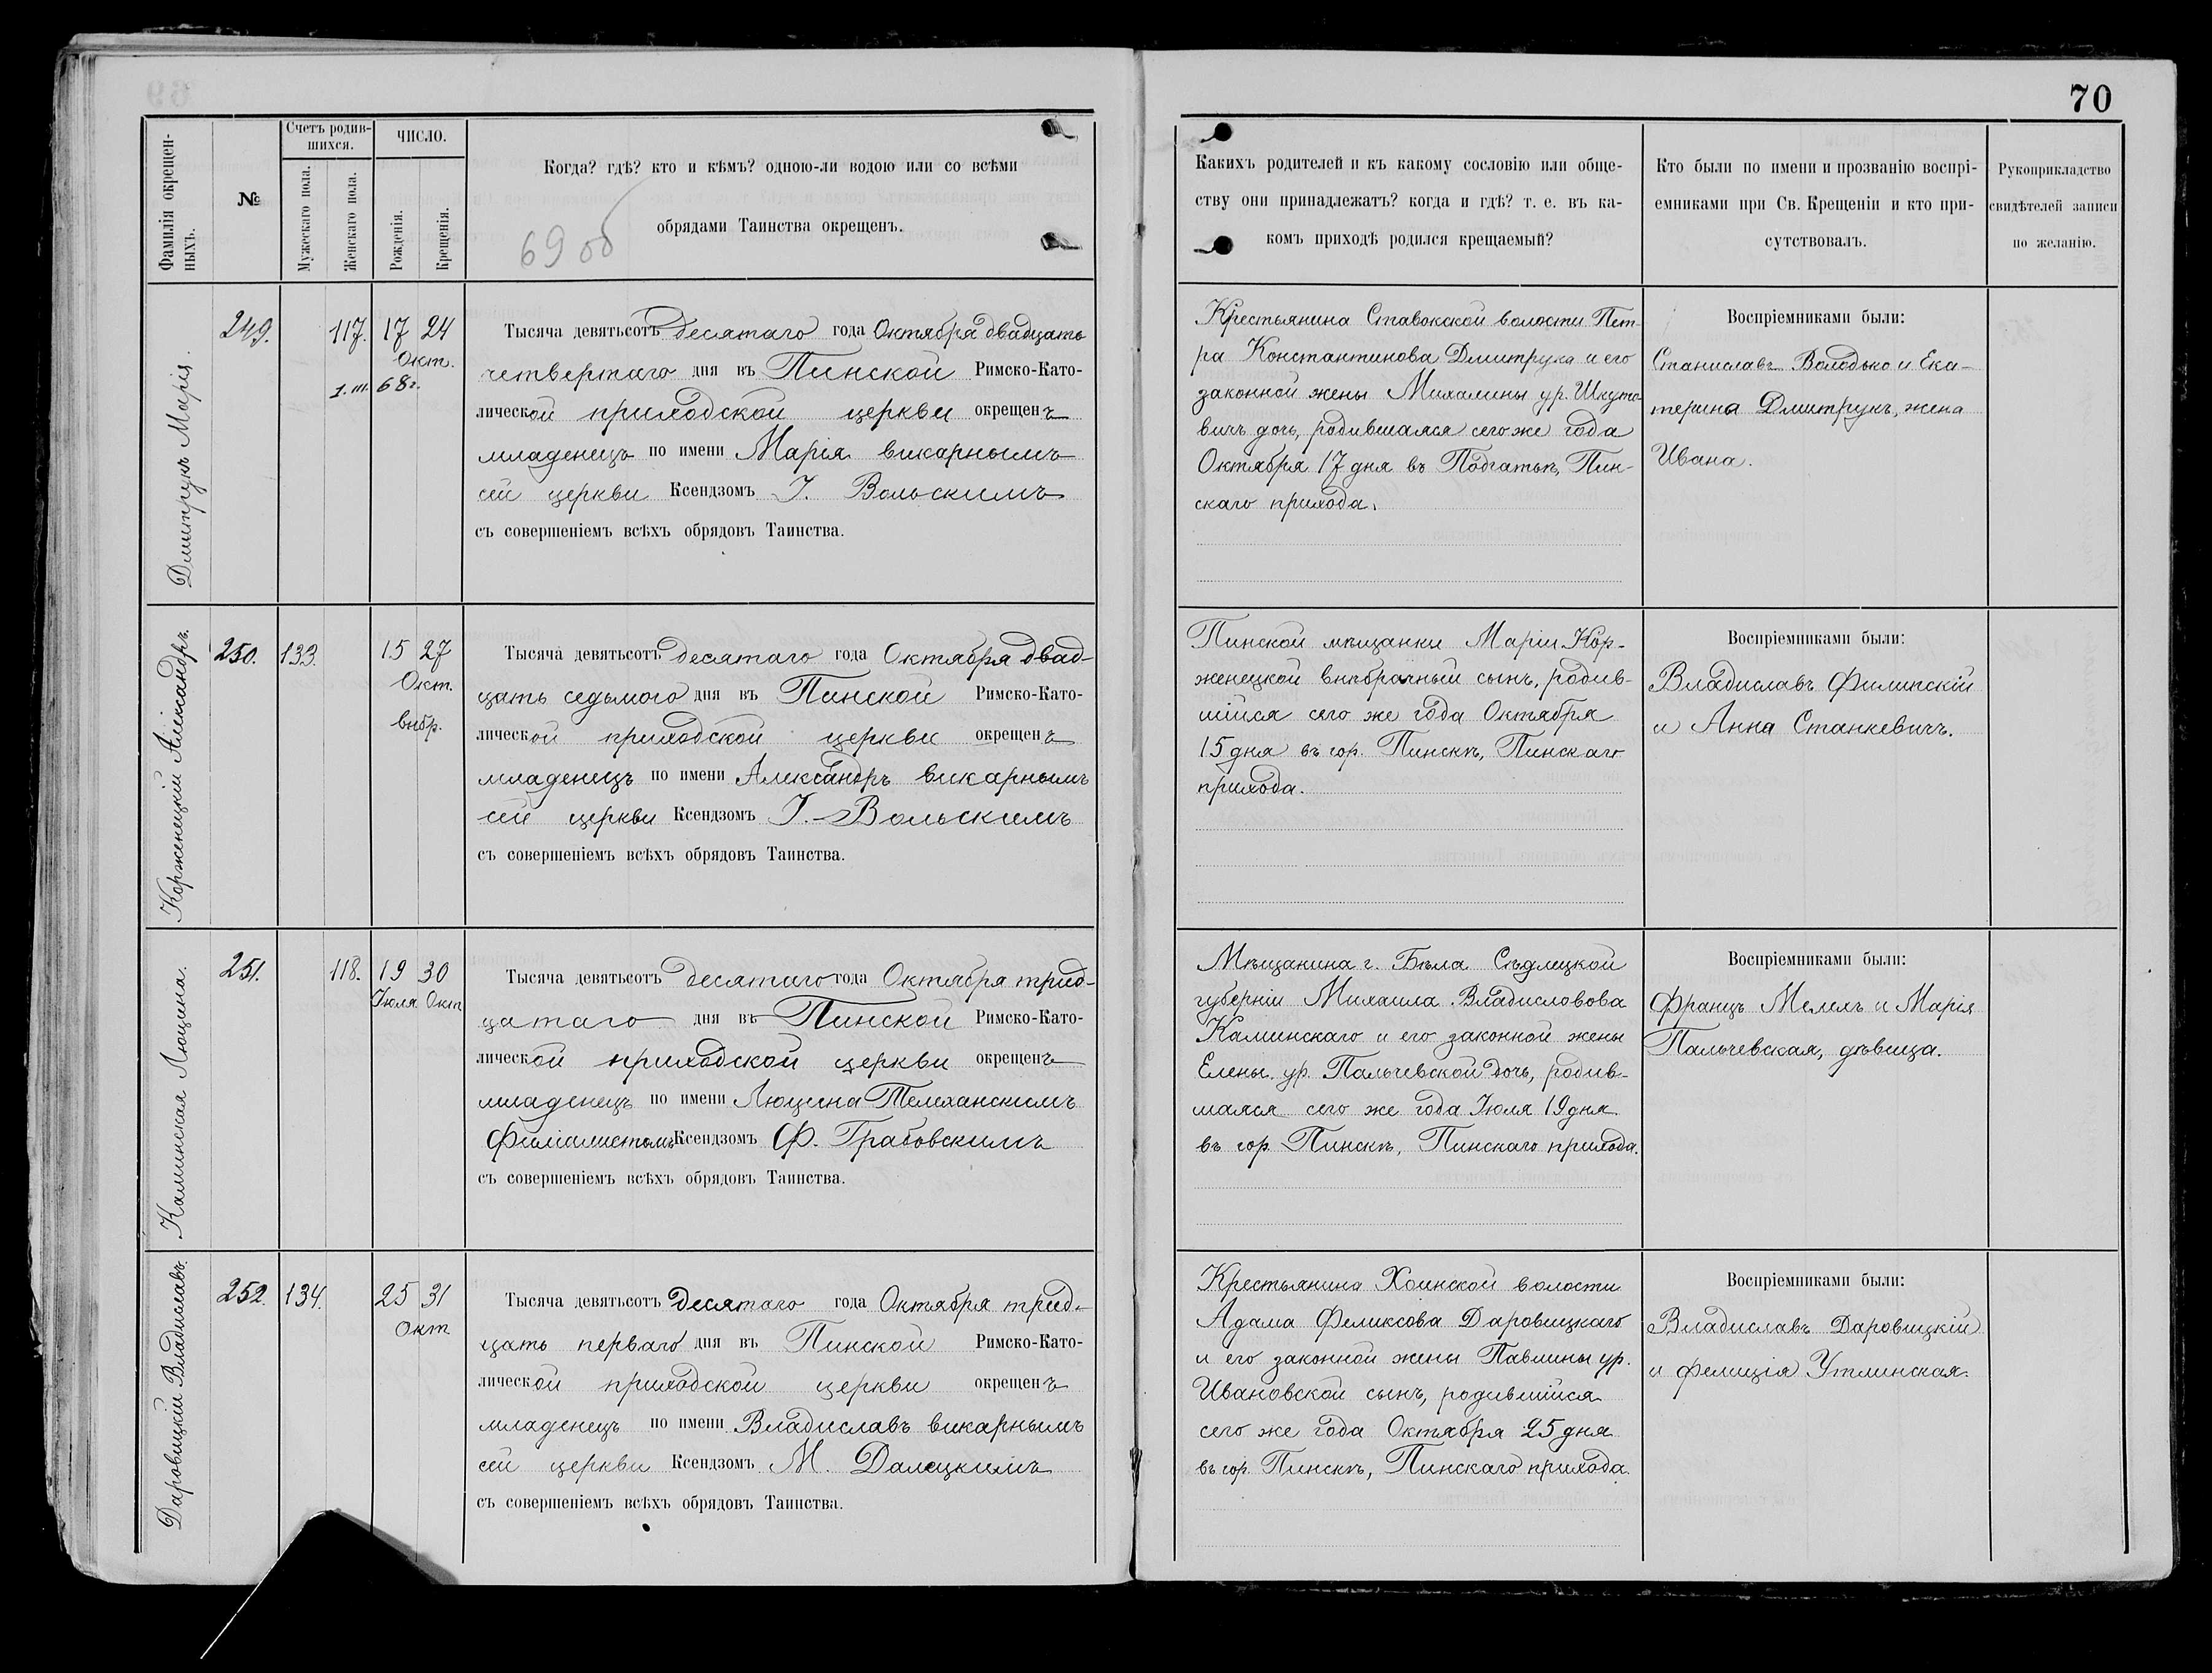 70
Фамилія окрещен-
ныхъ.
№
Счетъ родив-
шихся.
Мужескаго пола.
Женскаго пола.
ЧИСЛО.
Рожденія.
Крещенія.
Когда? гдѣ? кто и кѣмъ? одною-ли водою или со всѣми
обрядами Таинства окрещенъ.
69 об
Какихъ родителей и къ какому сословію или обще-
ству они принадлежатъ? когда и гдѣ? т. е. въ ка-
комъ приходѣ родился крещаемый?
Кто были по имени и прозванію воспрі-
емниками при Св. Крещеніи и кто при-
сутствовалъ.
Рукоприкладство
свидѣтелей записи
по желанію.
Дмитрукъ Марія.
249.
117.
17 24
Окт.
1. III. 68 г.
Тысяча девятьсотъ десятаго года Октября двадцать
четвертаго дня въ Пинской Римско-Като-
лической приходской церкви окрещенъ
младенецъ по имени Марія викарнымъ
сей церкви Ксендзомъ І. Вольскимъ
съ совершеніемъ всѣхъ обрядовъ Таинства.
Крестьянина Ставокской волости Пет-
ра Константинова Дмитрука и его
законной жены Михалины ур. Шкуто-
вичъ дочь, родившаяся сего же года
Октября 17 дня въ Подгатьѣ, Пин-
скаго прихода.
Воспріемниками были:
Станиславъ Володько и Ека-
терина Дмитрукъ, жена
Ивана.
Корженецкій Александръ.
250.
133.
15 27
Окт.
внбр.
Тысяча девятьсотъ десятаго года Октября двад-
цать седьмого дня въ Пинской Римско-Като-
лической приходской церкви окрещенъ
младенецъ по имени Александръ викарнымъ
сей церкви Ксендзомъ І. Вольскимъ
съ совершеніемъ всѣхъ обрядовъ Таинства.
Пинской мѣщанки Маріи Кор-
женецкой внѣбрачный сынъ, родив-
шійся сего же года Октября
15 дня въ гор. Пинскѣ, Пинскаго
прихода.
Воспріемниками были:
Владиславъ Филипскій
и Анна Станкевичъ.
Каминская Люцина.
251.
118.
19 30
Іюля Окт
Тысяча девятьсотъ десятаго года Октября трид-
цатаго дня въ Пинской Римско-Като-
лической приходской церкви окрещенъ
младенецъ по имени Люцина Телеханскимъ
Филіалистомъ Ксендзомъ Ф. Грабовскимъ
съ совершеніемъ всѣхъ обрядовъ Таинства.
Мѣщанина г. Бѣла Сѣдлецкой
губерніи Михаила Владисловова
Каминскаго и его законной жены
Елены ур. Пальчевской дочь, родив-
шаяся сего же года Іюля 19 дня
въ гор. Пинскѣ, Пинскаго прихода.
Воспріемниками были:
Францъ Мелехъ и Марія
Пальчевская, дѣвица.
Даровицкій Владиславъ.
252.
134.
25 31
Окт
Тысяча девятьсотъ десятаго года Октября трид-
цать перваго дня въ Пинской Римско-Като-
лической приходской церкви окрещенъ
младенецъ по имени Владиславъ викарнымъ
сей церкви Ксендзомъ М. Далецкимъ
съ совершеніемъ всѣхъ обрядовъ Таинства.
Крестьянина Хоинской волости
Адама Феликсова Даровицкаго
и его законной жены Павлины ур.
Ивановской сынъ, родившійся
сего же года Октября 25 дня
въ гор. Пинскѣ, Пинскаго прихода.
Воспріемниками были:
Владиславъ Даровицкій
и Фелиція Утлинская.